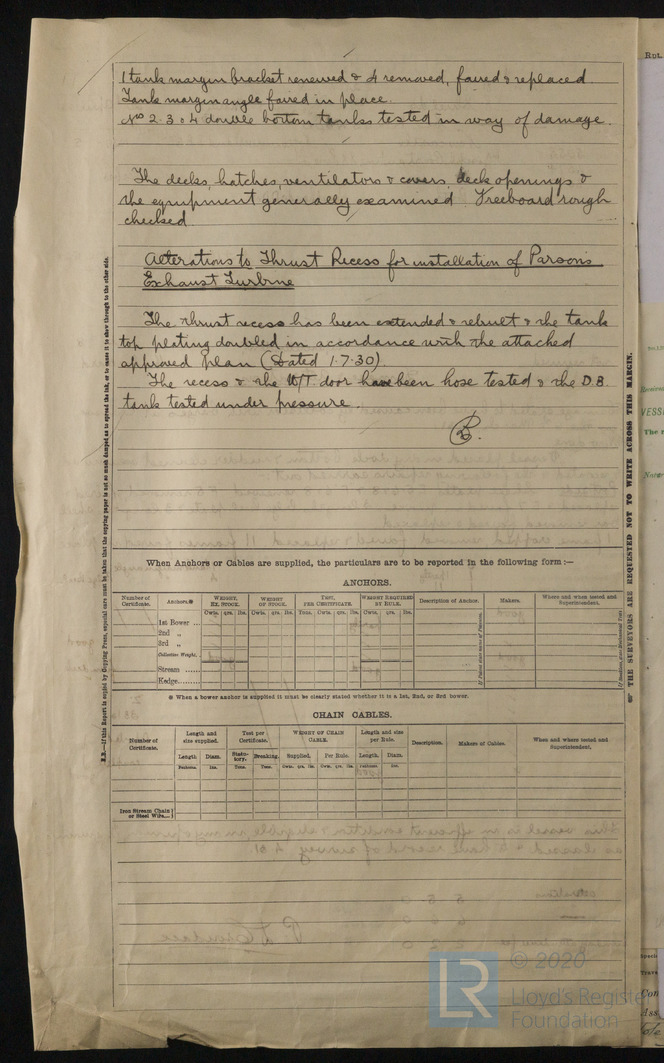 1 tank margin bracket renewed & 4 removed, faired & replaced.
Tank margin angle faired in place.
Nos 2. 3 & 4 double bottom tanks tested in way of damage.
The decks, hatches, ventilators & covers, deck openings &
the equipment generally examined Freeboard rough
checked
Alterations to Thrust Recess for installation of Parsons
Exhaust Turbine
The thrust recess has been extended & rebuilt & the tank
top plating doubled in accordance with the attached
approved plan (Dated 1-7-30).
The recess & the W/T door have been hose tested & the D.B.
tank tested under pressure.
B.
When Anchors or Cables are supplied, the particulars are to be reported in the following form :—
ANCHORS.
Number of Certificate. Anchors.* WEIGHT, EX. STOCK. WEIGHT OF STOCK. TEST, PER CERTIFICATE. WEIGHT REQUIRED BY RULE. Description of Anchor. Makers. Where and when tested and Superintendent.
Cwts. qrs. lbs. Cwts. qrs. lbs. Tons. Cwts. qrs. lbs. Cwts. qrs. lbs.
1st Bower ...
2nd „
3rd „
Collective Weight.
Stream ......
Kedge........
* When a bower anchor is supplied it must be clearly stated whether it is a 1st, 2nd, or 3rd bower.
CHAIN CABLES.
Number of Certificate. Length and size supplied. Test per Certificate. WEIGHT OF CHAIN CABLE. Length and size per Rule. Description. Makers of Cables. When and where tested and Superintendent.
Length Diam. Statutory. Breaking. Supplied. Per Rule. Length. Diam.
Fathoms. Ins. Tons. Tons. Cwts. qrs. lbs. Cwts. qrs. lbs. Fathoms. Ins.
Iron Stream Chain
or Steel Wire...
N.B.—If this Report is copied by Copying Press, especial care must be taken that the copying paper is not so much damped as to spread the ink, or to cause it to show through to the other side.
THE SURVEYORS ARE REQUESTED NOT TO WRITE ACROSS THIS MARGIN.
Rpt.
VESS
The r
LR
© 2020
Lloyd's Register
Foundation